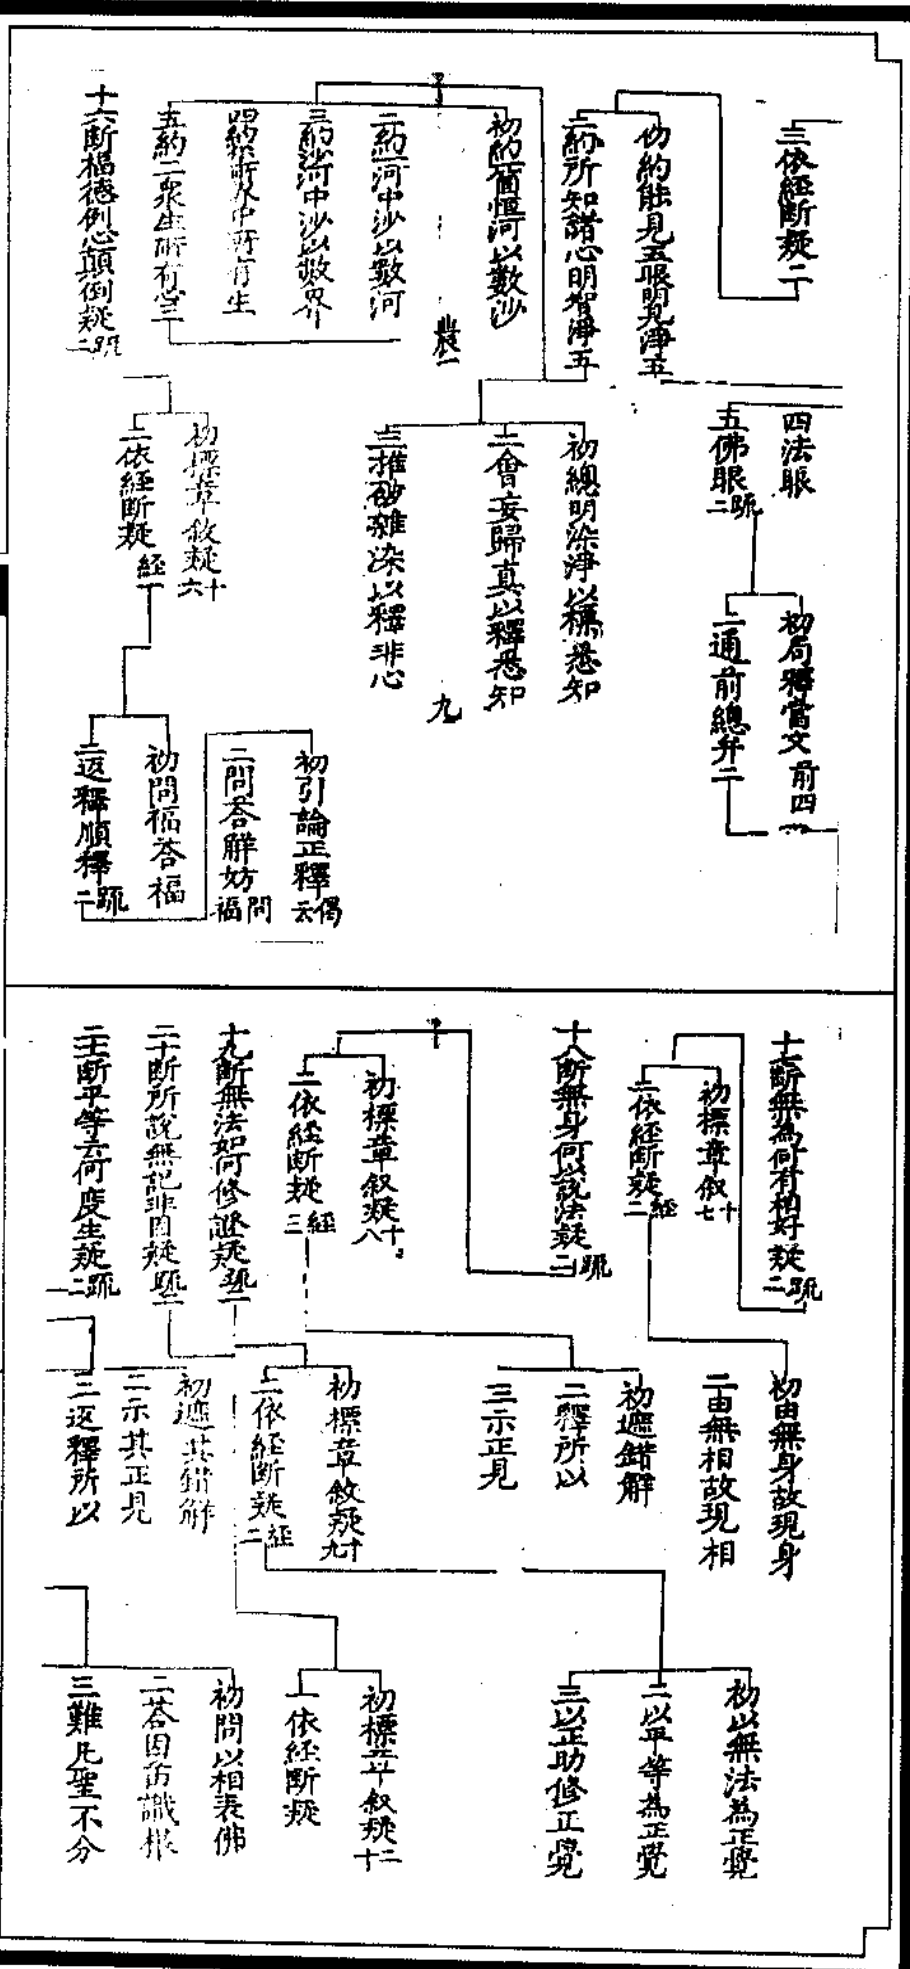 三依經斷疑二
初約能見五眼明見淨五
二約所知諸心明智淨五
初約一箇恒河以數沙
二約一河中沙以數河
三約沙河中沙以數界
五約一一衆生所有心三
十六斷福德例心顛倒疑疏二
四法眼
五佛眼疏二
初總明染淨以標悉知
二會妄歸真以釋悉知
九
三推破雜染以釋非心
初標章敘疑十六
二依經斷疑經二
初局釋當文前四
二通前總弁二
初引論正釋偈云
二問荅觧妨問福
初問福荅福
二返釋順釋疏二
十七斷無為何有相好疑疏二
初標章叙十七
二依經斷疑經二
十八斷無身何以說法疑疏二
初標章叙疑十八
二依經斷疑經三
十九斷無法如何修證疑疏二
二十斷所說無記非因疑疏二
二十一斷平等云何度生疑疏二
初由無身故現身
二由無相故現相
初遮錯解
二釋所以
三示正見
初標章敘疑十九
二依經斷疑經二
初遮其錯解
二示其正見
二返釋所以
初以無法為正覺
二以平等為正覺
三以正助修正覺
初標章叙疑二十
二依經斷疑
初問以相表佛
三難凡聖不分